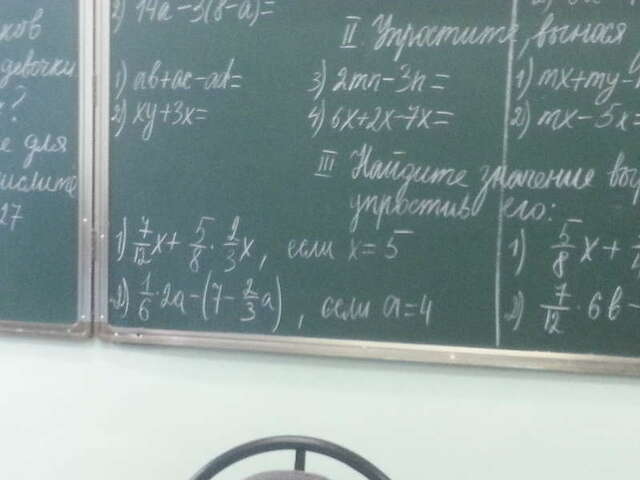 ков
девочки
?
е для
ислите
27
2) 14a-3(8-a)=
II Упростите, вынося
1) ab+ac-ad=
2) xy+3x=
3) 2mn-3n=
4) 6x+2x-7x=
III Найдите значение выр
упростив его:
1) 7/12 x + 5/8 · 2/3 x, если x=5
2) 1/6 · 2a - (7 - 2/3 a), если a=4
1) mx+my-
2) mx-5x=
1) 5/8 x +
2) 7/12 · 6b -